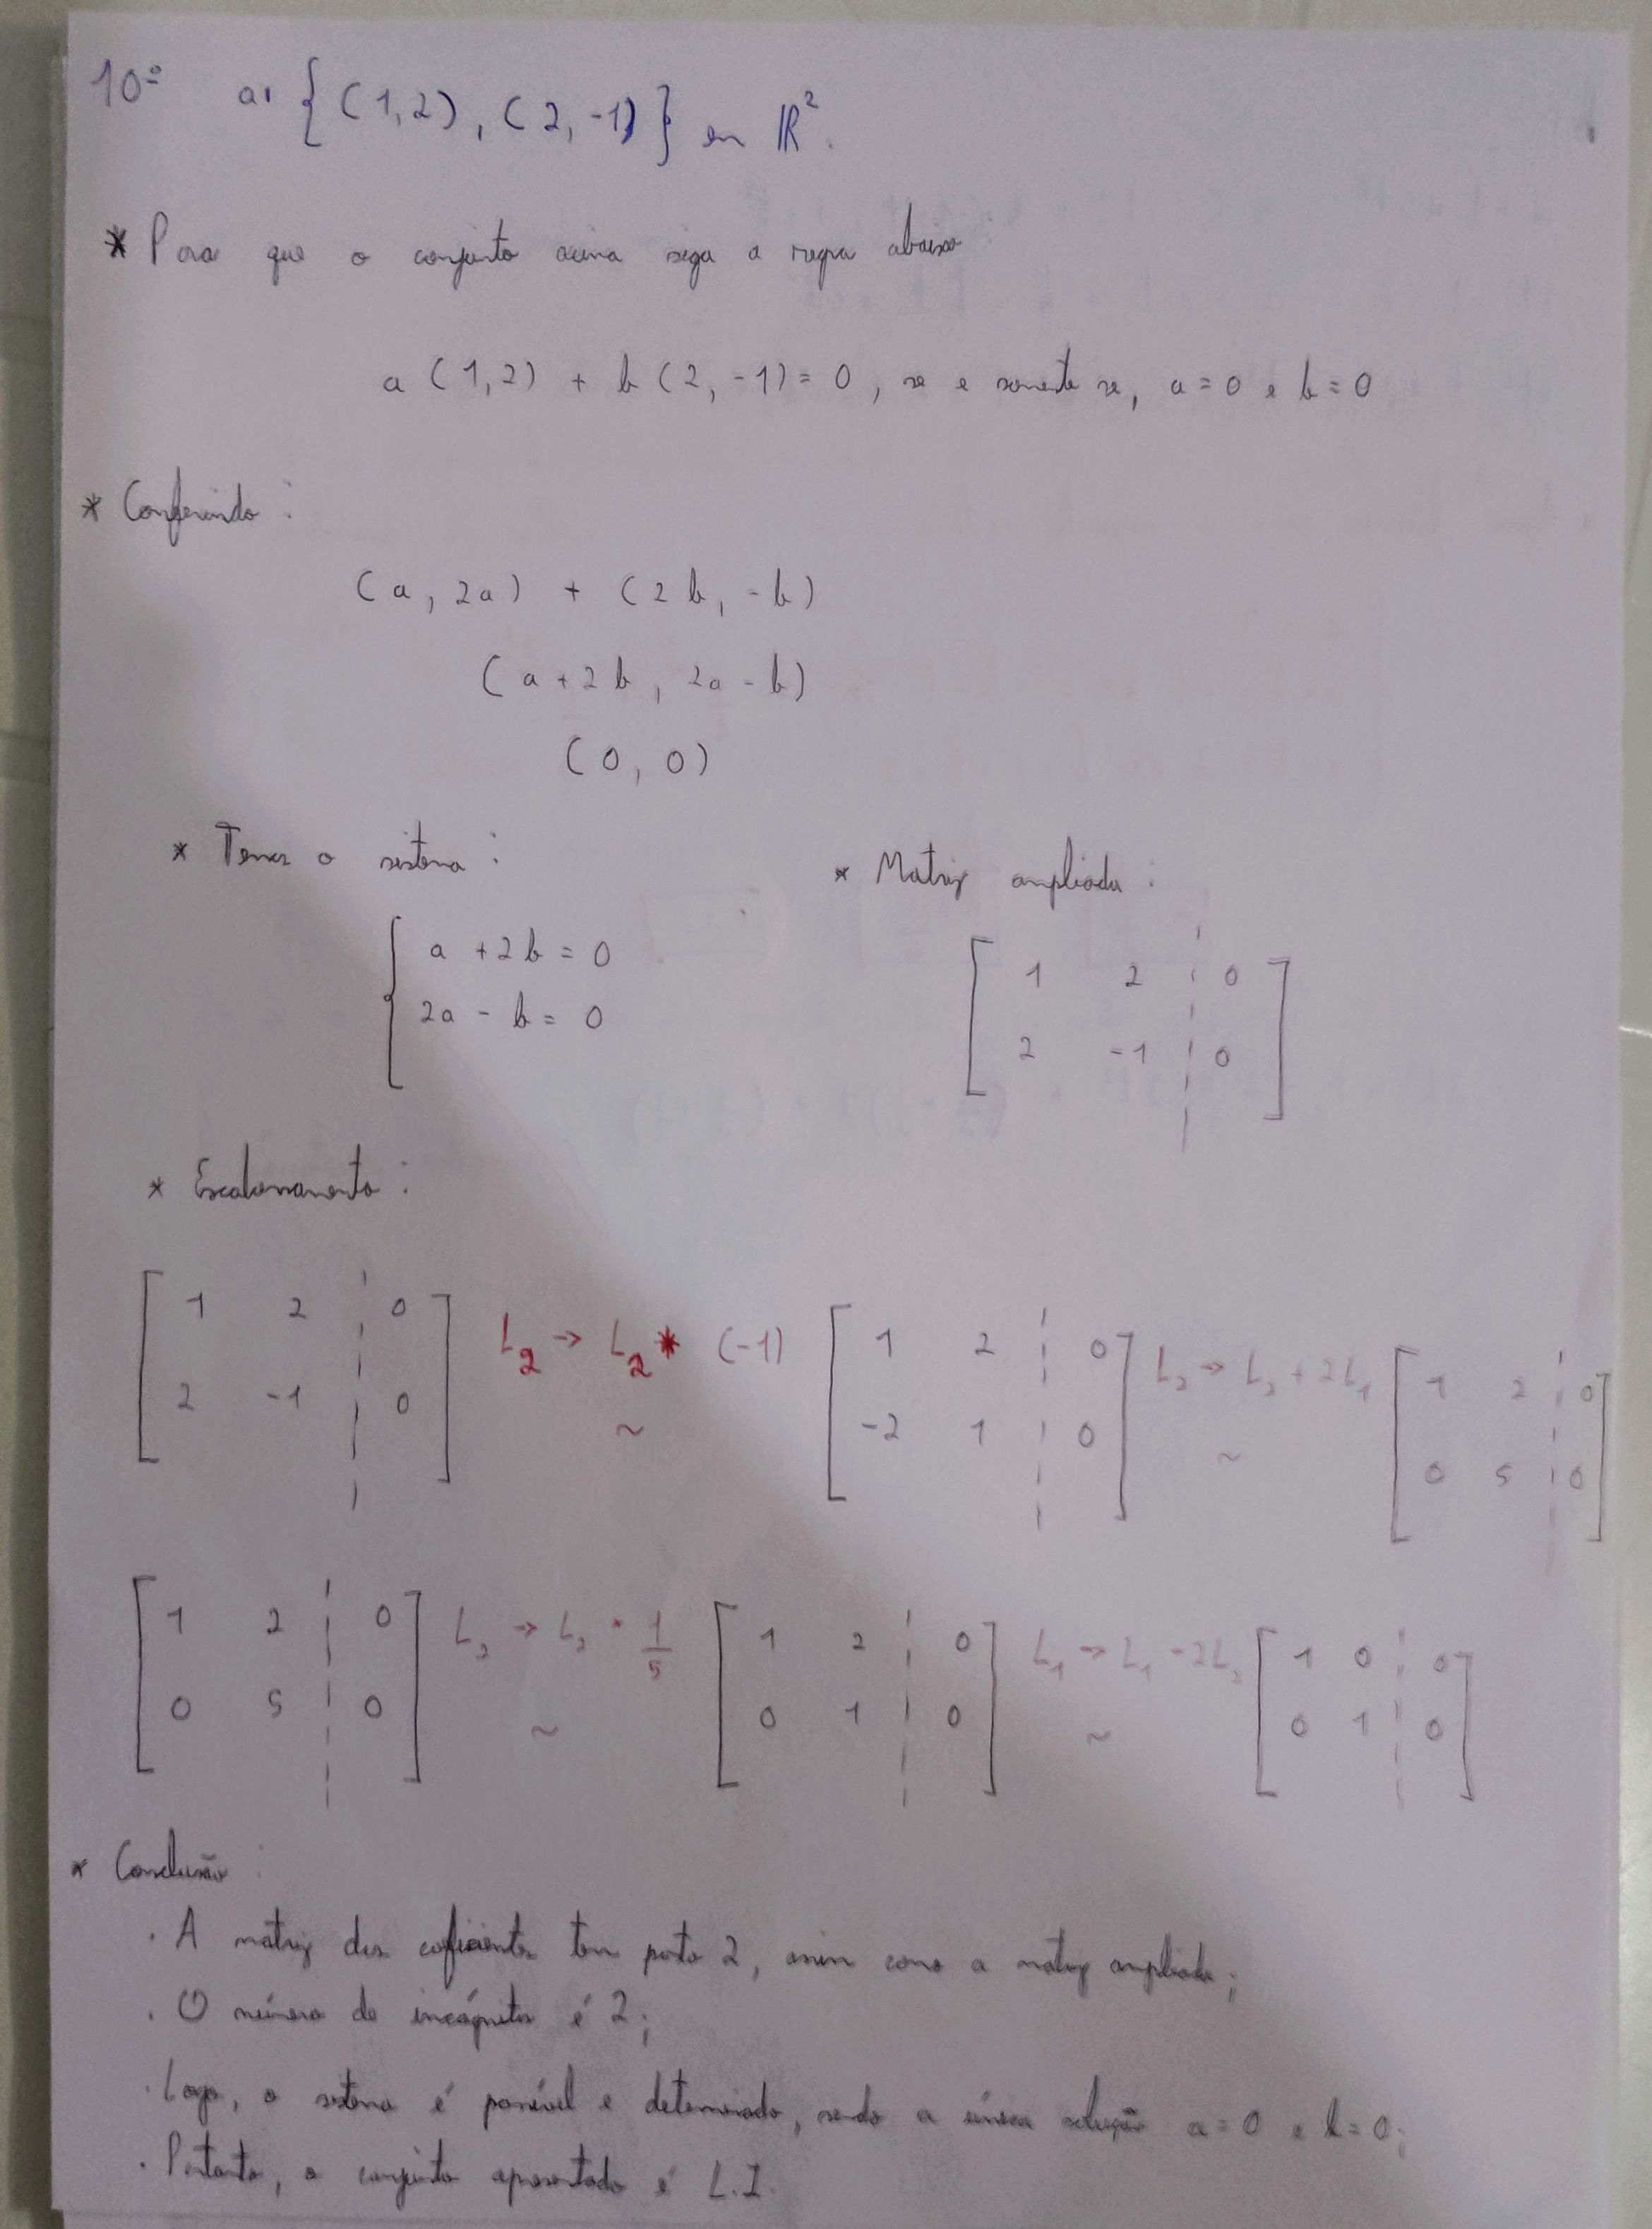 10º a) { (1,2), (2,-1) } em ℝ².
* Para que o conjunto acima siga a regra abaixo:
a (1,2) + b (2,-1) = 0, se e somente se, a=0 e b=0
* Conferindo:
(a, 2a) + (2b, -b)
(a+2b, 2a-b)
(0, 0)
* Temos o sistema:
{ a + 2b = 0
2a - b = 0
* Matriz ampliada:
[ 1 2 ¦ 0 ]
[ 2 -1 ¦ 0 ]
* Escalonamento:
[ 1 2 ¦ 0 ] L₂ → L₂ * (-1) [ 1 2 ¦ 0 ] L₂ → L₂ + 2L₁ [ 1 2 ¦ 0 ]
[ 2 -1 ¦ 0 ] ~ [ -2 1 ¦ 0 ] ~ [ 0 5 ¦ 0 ]
[ 1 2 ¦ 0 ] L₂ → L₂ * 1/5 [ 1 2 ¦ 0 ] L₁ → L₁ - 2L₂ [ 1 0 ¦ 0 ]
[ 0 5 ¦ 0 ] ~ [ 0 1 ¦ 0 ] ~ [ 0 1 ¦ 0 ]
* Conclusão:
. A matriz dos coficientes tem posto 2, assim como a matriz ampliada;
. O número de incógnitas é 2;
. Logo, o sistema é possível e determinado, sendo a única solução a=0 e b=0;
. Portanto, o conjunto apresentado é L.I.